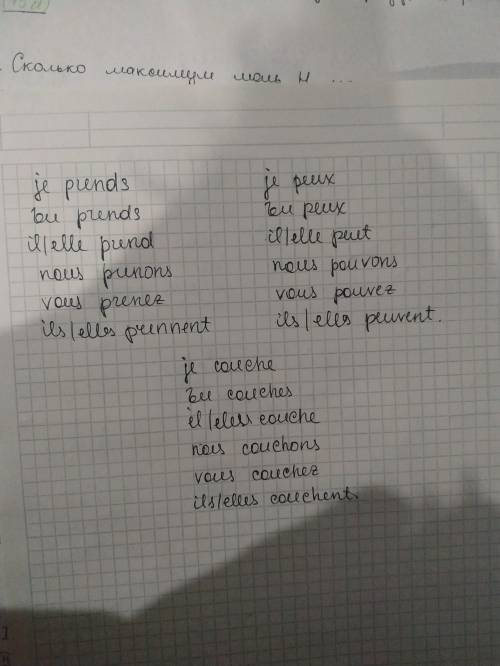 Сколько максимум моль н ...
je prends
tu prends
il/elle prend
nous prenons
vous prenez
ils/elles prennent
je peux
tu peux
il/elle peut
nous pouvons
vous pouvez
ils/elles peuvent.
je couche
tu couches
il/elles couche
nous couchons
vous couchez
ils/elles couchent.